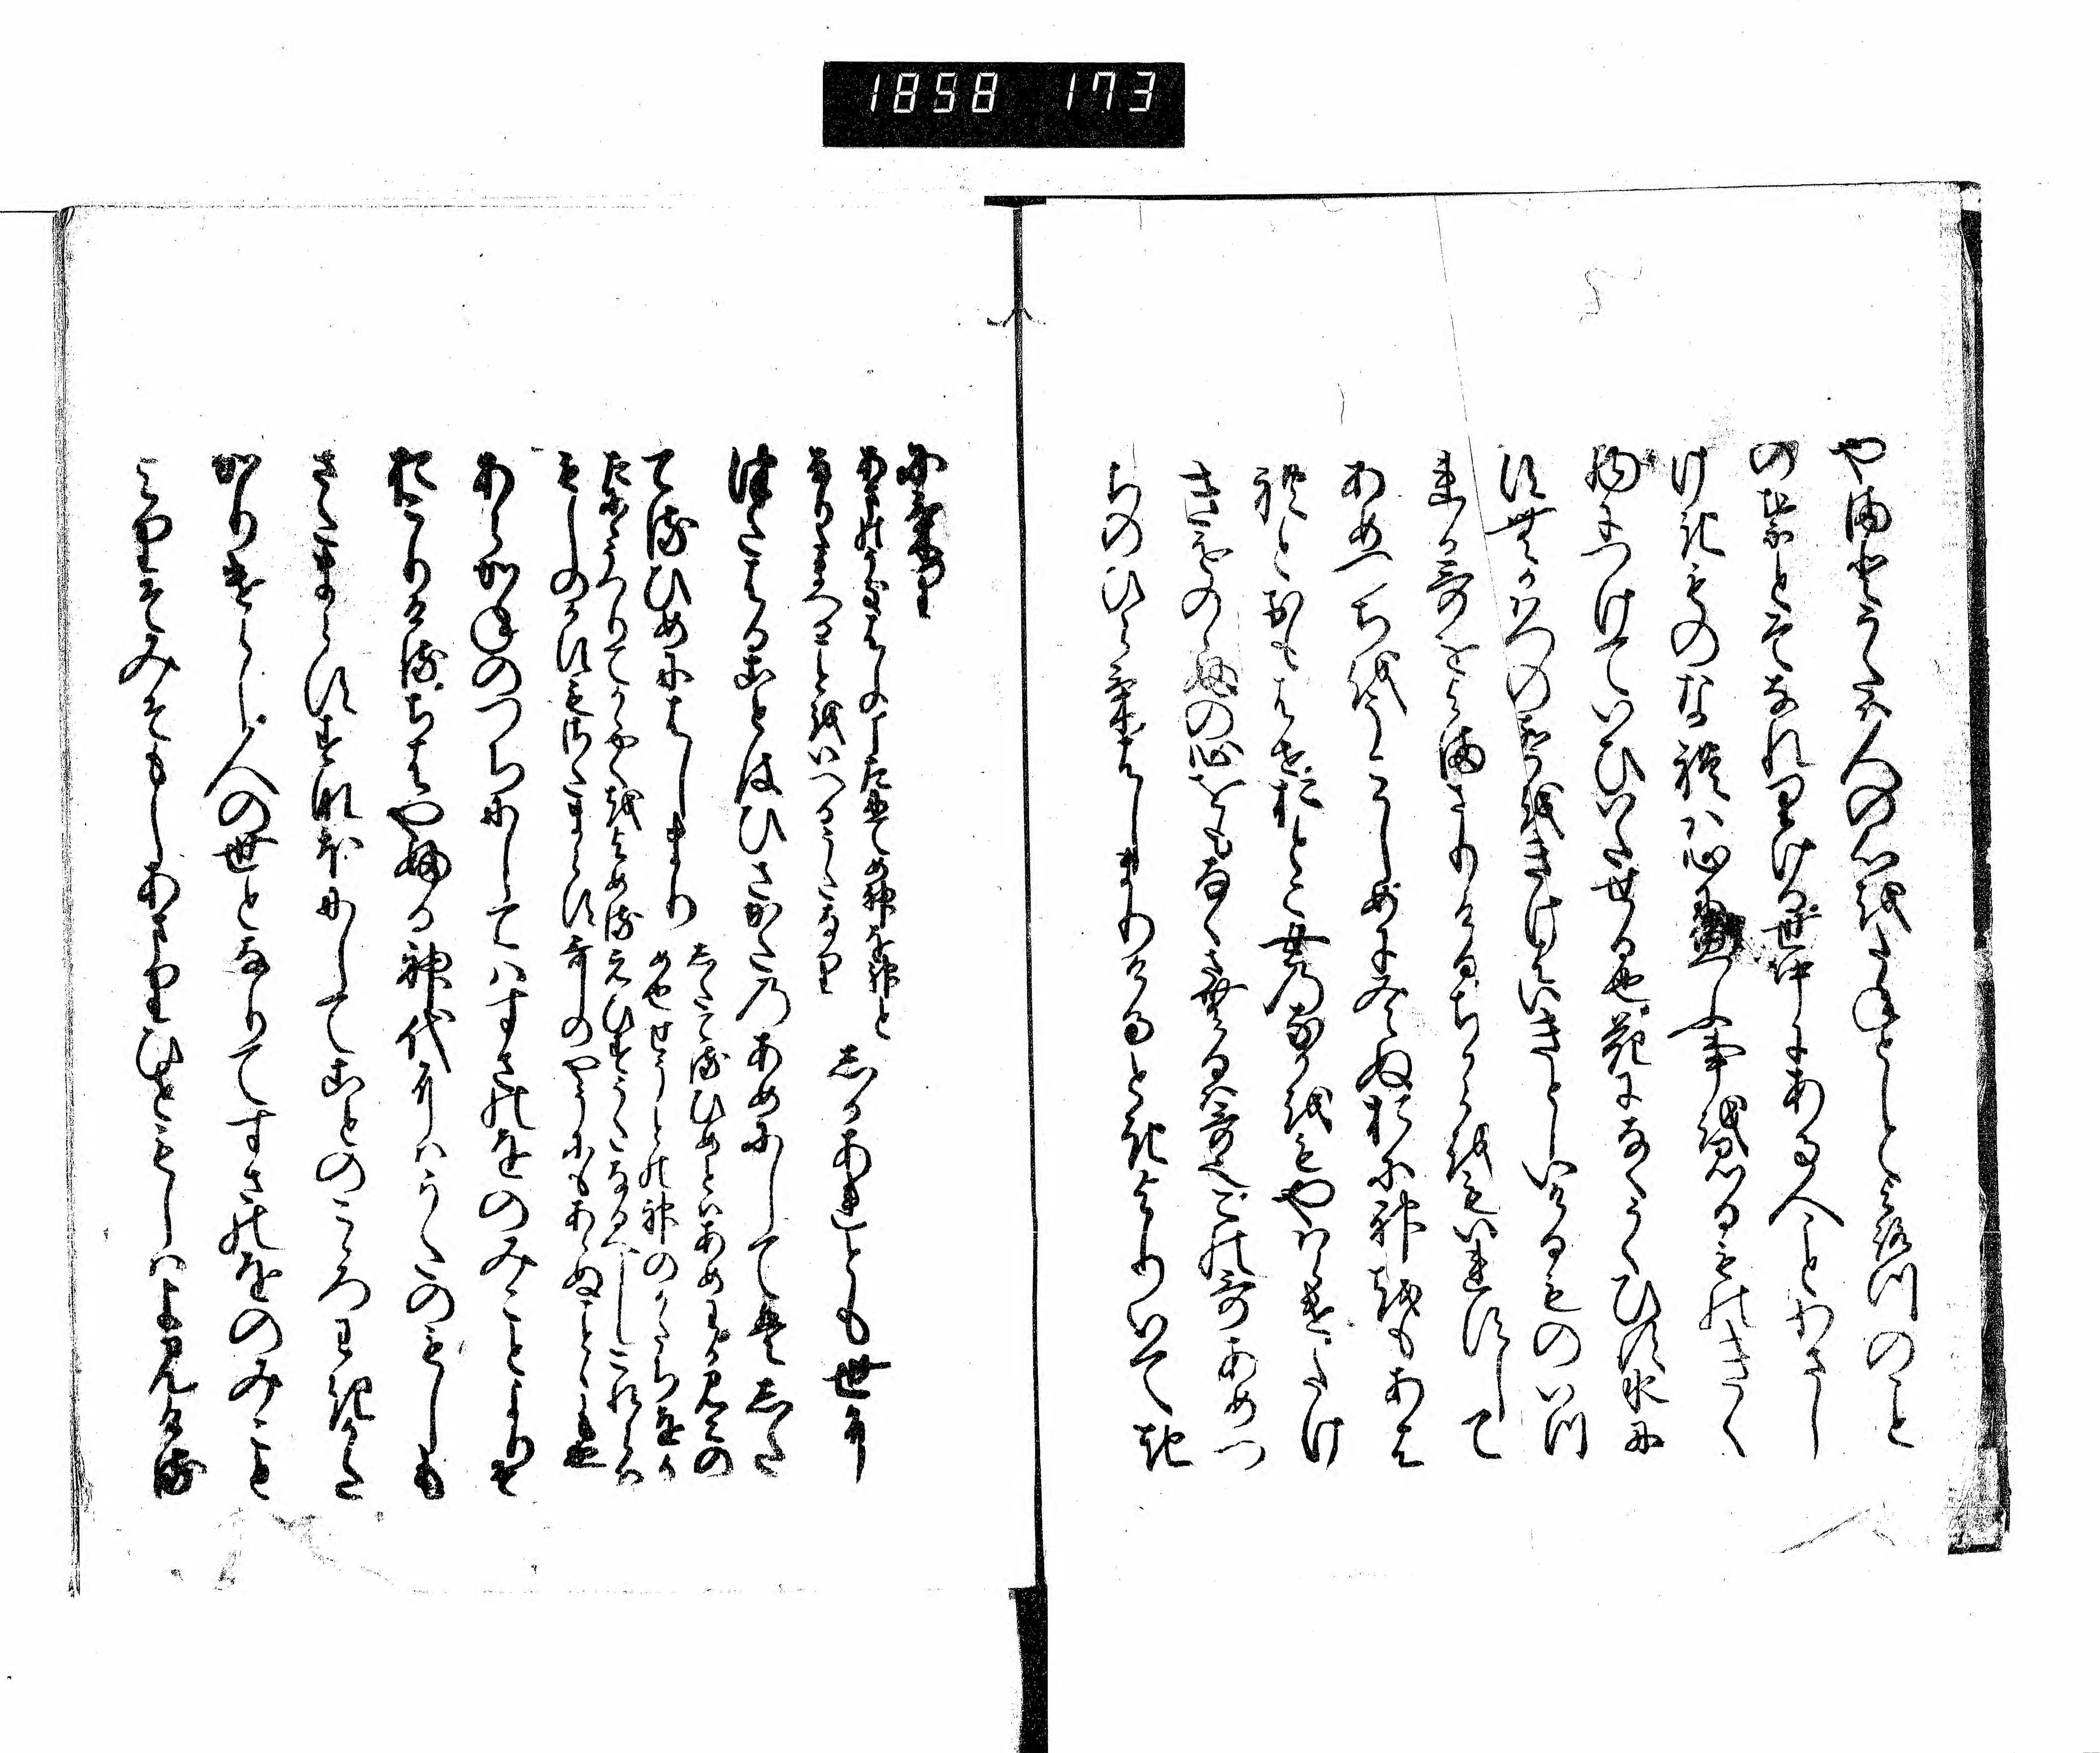 1858 173
やまとうたは人の心をたねとしてよろつのこと
の葉とそなれりける世中にある人ことわさし
けきものなれは心に思ふ事を見るものきく
物につけていひいたせる也花になくうくひす水に
すむかはつのこゑをきけはいきとしいけるものいつ
れか哥をよまさりけるちからをもいれすして
あめつちをうこかしめに見えぬおに神をもあは
れとおもはせおとこ女のなかをもやはらけたけ
きものゝふの心をもなくさむるは哥なりこの哥あめつ
ちのひらけはしまりけるときよりいてき
にけり
あまのうきはしのしたにてめ神を神と
なりたまへることをいへるうたなり
しかあれとも世に
つたはることはひさかたのあめにしてはした
てるひめにはしまり
したてるひめとはあめわかみこの
め也せうとの神のかたちをか
たにうつりてかゝやくをよめる
えひすうたなるへしこれらは
もしのかすもさたまらす哥のやうにもあらぬことゝも也
あらかねのつちにしてはすさのをのみことよりそ
おこりけるちはやふる神代にはうたのもしも
さたまらすすなほにしてことのこゝろわきかた
かりけらし人の世となりてすさのをのみこと
よりそみそもしあまりひともしはよみける